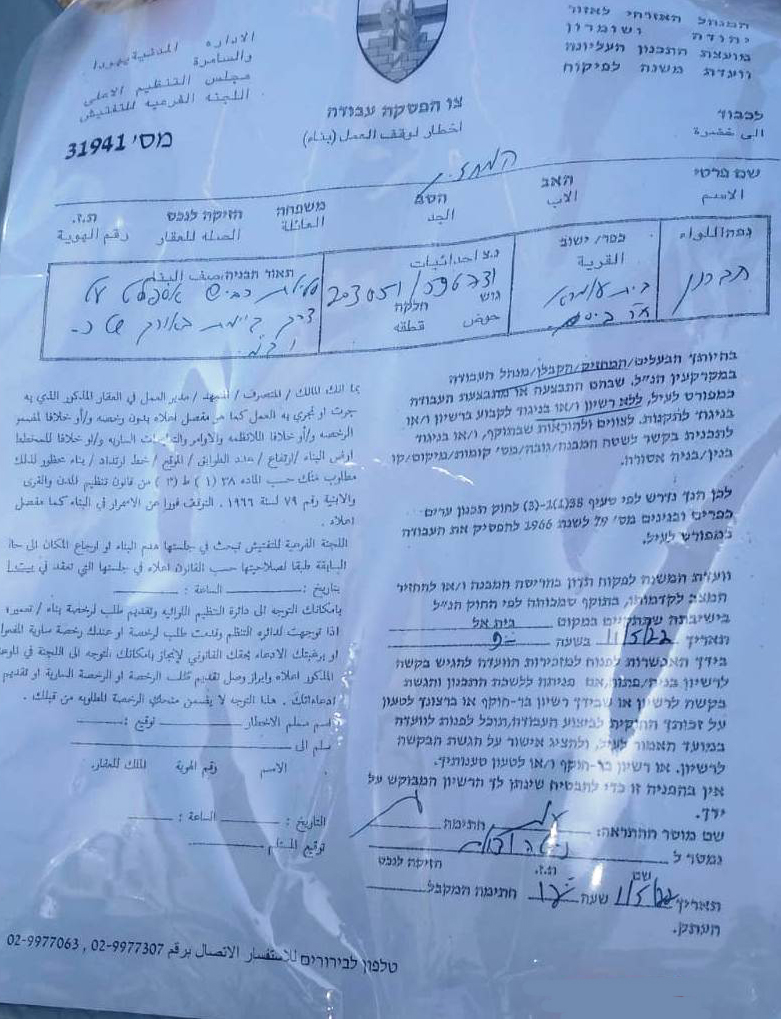 המנהל האזרחי לאזור
יהודה ושומרון
מועצת התכנון העליונה
וועדת משנה לפיקוח
الاداره المدنية يهودا
والسامرة
مجلس التنظيم الاعلى
اللجنه الفرعيه للتفتيش
מס' 31941
צו הפסקת עבודה
اخطار لوقف العمل (بناء)
לכבוד
الى حضرة
המחזיק
שם פרטי האב הסב משפחה הזיקה לנכס ת.ז.
الاسم الاب الجد العائلة الصله للعقار رقم الهوية
נפה/اللواء
חברון
כפר/ישוב
القرية
בית עומר
נ.צ احداثيات
203051/596731
גוש חלקה
حوض قطعه
תאור הבניה/وصف البناء
סלילת כביש אספלט על
דרך קיימת באורך של כ-
1 ק"מ
בהיותך הבעלים/המחזיק/הקבלן/מנהל העבודה
במקרקעין הנ"ל, שבהם התבצעה או מתבצעת העבודה
כמפורט לעיל, ללא רשיון ו/או בניגוד לקבוע ברשיון ו/או
בניגוד לתקנות, לצווים ולהוראות שבתוקף, ו/או בניגוד
לתכנית בקשר לשטח המבנה/גובה/מס' קומות/מיקום/קו
בנין/בניה אסורה.
לכן הנך נדרש לפי סעיף 38(1)ג-(3) לחוק תכנון ערים
כפרים ובנינים מס' 79 לשנת 1966 להפסיק את העבודה
כמפורט לעיל.
וועדת המשנה לפקוח תדון בהריסת המבנה ו/או להחזיר
המצב לקדמותו, בתוקף סמכותה לפי החוק הנ"ל
בישיבתה שתתקיים במקום בית אל
תאריך 11/5/22 בשעה 9:00
בידך האפשרות לפנות למזכירות הוועדה להגיש בקשה
לרשיון בניה/פתוח, אם פנית ללשכת התכנון והגשת
בקשה לרשיון או שבידך רשיון בר-תוקף או ברצונך לטעון
על זכותך החוקית לביצוע העבודה, תוכל לפנות לוועדה
במועד האמור לעיל, ולהציג אישור על הגשת הבקשה
לרשיון, או רשיון בר-תוקף ו/או לטעון טענותיך.
אין בהפניה זו כדי להבטיח שינתן לך הרשיון המבוקש על
ידך.
שם מוסר ההתראה: חתימה
נמסר ל
שם ת.ז. הזיקה לנכס
תאריך 1/5/22 שעה חתימת המקבל
העתק.
بما انك المالك / المتصرف / المتعهد / مدير العمل في العقار المذكور الذي به
جرت او تجري به العمل كما هو مفصل اعلاه بدون رخصه و/أو خلافا لمضمون
الرخصه و/أو خلافا للانظمه والاوامر والتعليمات الساريه و/او خلافا للمخطط
ارض البناء /ارتفاع / عدد الطوابق / الموقع / خط ارتداد / بناء محظور لذلك
مطلوب منك حسب الماده ٣٨ (١) ط (٣) من قانون تنظيم المدن والقرى
والابنية رقم ٧٩ لسنة ١٩٦٦. التوقف فورا عن الاستمرار في البناء كما مفصل
اعلاه .
اللجنة الفرعية للتفتيش تبحث في جلستها هدم البناء او ارجاع المكان الى حا
السابقة طبقا لصلاحيتها حسب القانون اعلاه في جلستها التي تعقد في
بتاريخ : الساعة :
بامكانك التوجه الى دائرة التنظيم اللوائيه وتقديم طلب لرخصة بناء / تعمير؛
اذا توجهت لدائره التنظم وقدمت طلب لرخصة او عندك رخصة سارية المفعو
او برغبتك الادعاء بحقك القانوني لإنجاز بامكانك التوجه الى اللجنة في الموعد
المذكور اعلاه وابراز وصل تقديم طلب الرخصة او الرخصة السارية او تقديم
ادعاءاتك . هذا التوجه لا يضمن منحك الرخصة المطلوبه من قبلك .
اسم مسلم الاخطار توقيع :
سلم الى
الاسم رقم الهوية المالك للعقار.
التاريخ : الساعة :
توقيع المستلم
טלפון לבירורים للاستفسار الاتصال برقم 02-9977307 , 02-9977063